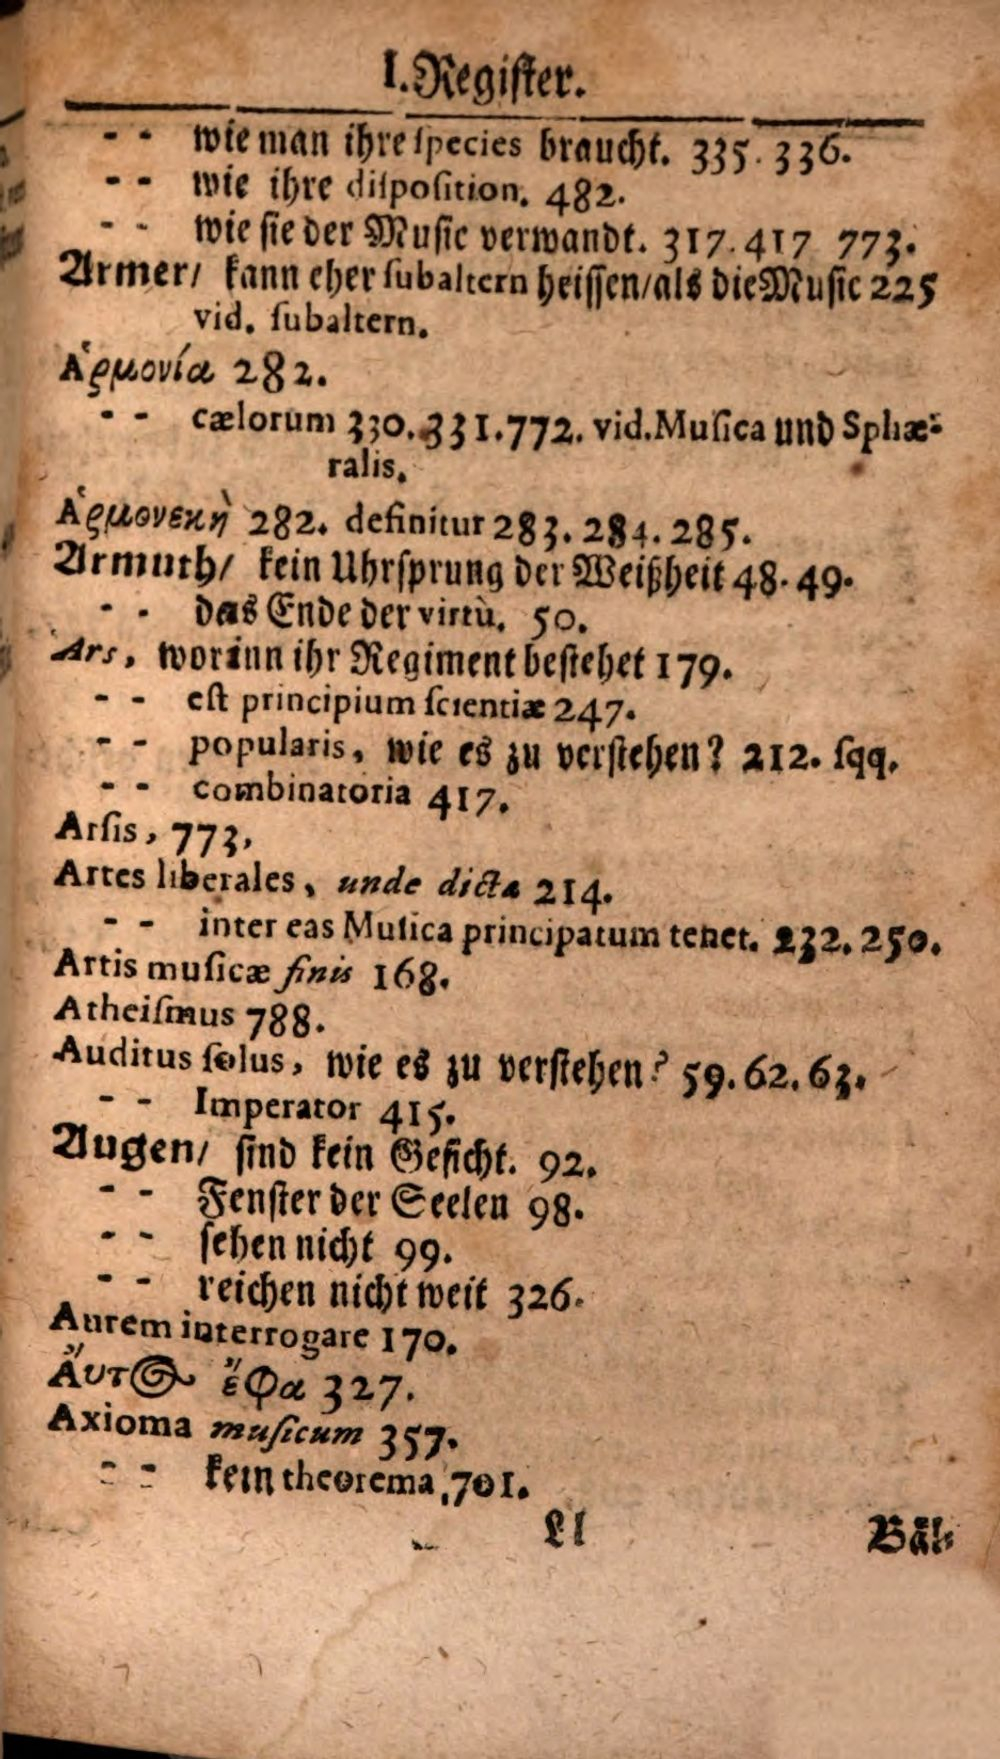 I. Regiſter.
- - wie man ihre ſpecies braucht. 335. 336.
- - wie ihre diſpoſition. 482.
- - wie ſie der Muſic verwandt. 317. 417 773.
Armer/ kann eher ſubaltern heiſſen/als die Muſic 225
vid. ſubaltern.
Ἁρμονία 282.
- - cælorum 330. 331. 772. vid. Muſica und Sphæ-
ralis.
Ἁρμονεκὴ 282. definitur 283. 284. 285.
Armuth/ kein Uhrſprung der Weißheit 48. 49.
- - das Ende der virtù. 50.
Ars, worinn ihr Regiment beſtehet 179.
- - eſt principium ſcientiæ 247.
- - popularis, wie es zu verſtehen? 212. ſqq.
- - combinatoria 417.
Arſis, 773,
Artes liberales, unde dicta 214.
- - inter eas Muſica principatum tenet. 232. 250.
Artis muſicæ finis 168.
Atheiſmus 788.
Auditus ſolus, wie es zu verſtehen? 59. 62. 63.
- - Imperator 415.
Augen/ ſind kein Geſicht. 92.
- - Fenſter der Seelen 98.
- - ſehen nicht 99.
- - reichen nicht weit 326.
Aurem interrogare 170.
Ἄυτος ἔφα 327.
Axioma muſicum 357.
- - kein theorema, 701.
Ll Bäl-